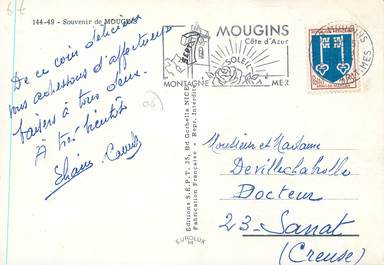 6€
144-49 - Souvenir de MOUGINS
De ce coin délicieux
vous adressons d'affectueux
baisers à tous deux.
À très bientôt
(06)
Editions S.E.P.T. 35, Bd Gorbella NICE
Fabrication Française - Repr. Interdite
EUROLUX
MOUGINS
Côte d'Azur
SOLEIL
MONTAGNE
MER
MOUGINS
Monsieur et Madame
Docteur
23 - Sanat
(Creuse)